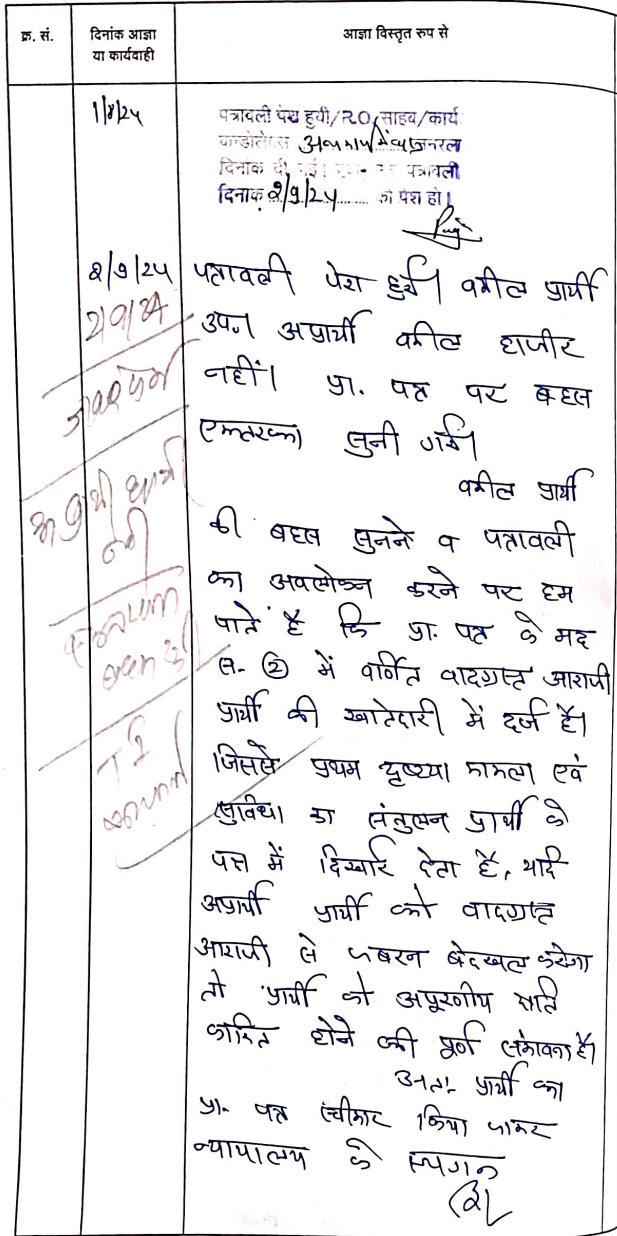 क्र. सं.
दिनांक आज्ञा
या कार्यवाही
आज्ञा विस्तृत रुप से
1/8/24
पत्रावली पेश हुयी/R.O. साहब/कार्य
दिनांक दी गई। पत्रावली
दिनांक 2/9/24 को पेश हो।
2/9/24
पत्रावली पेश हुई। वकील प्रार्थी
उप.। अप्रार्थी वकील हाजीर
नहीं। प्रा. पत्र पर बहस
एकतरफा सुनी गई।
वकील प्रार्थी
की बहस सुनने व पत्रावली
का अवलोकन करने पर हम
पाते है कि प्रा. पत्र के मद
स. ② में वर्णित वादग्रस्त आराजी
प्रार्थी की खातेदारी में दर्ज है।
जिससे प्रथम दृष्टया मामला एवं
सुविधा का संतुलन प्रार्थी के
पक्ष में दिखाई देता है, यदि
अप्रार्थी प्रार्थी को वादग्रस्त
आराजी से जबरन बेदखल करेगा
तो प्रार्थी को अपूरणीय क्षति
कारित होने की पूर्ण संभावना है।
अतः प्रार्थी का
प्रा. पत्र स्वीकार किया जाकर
न्यायालय के स्थगन
2/9/24